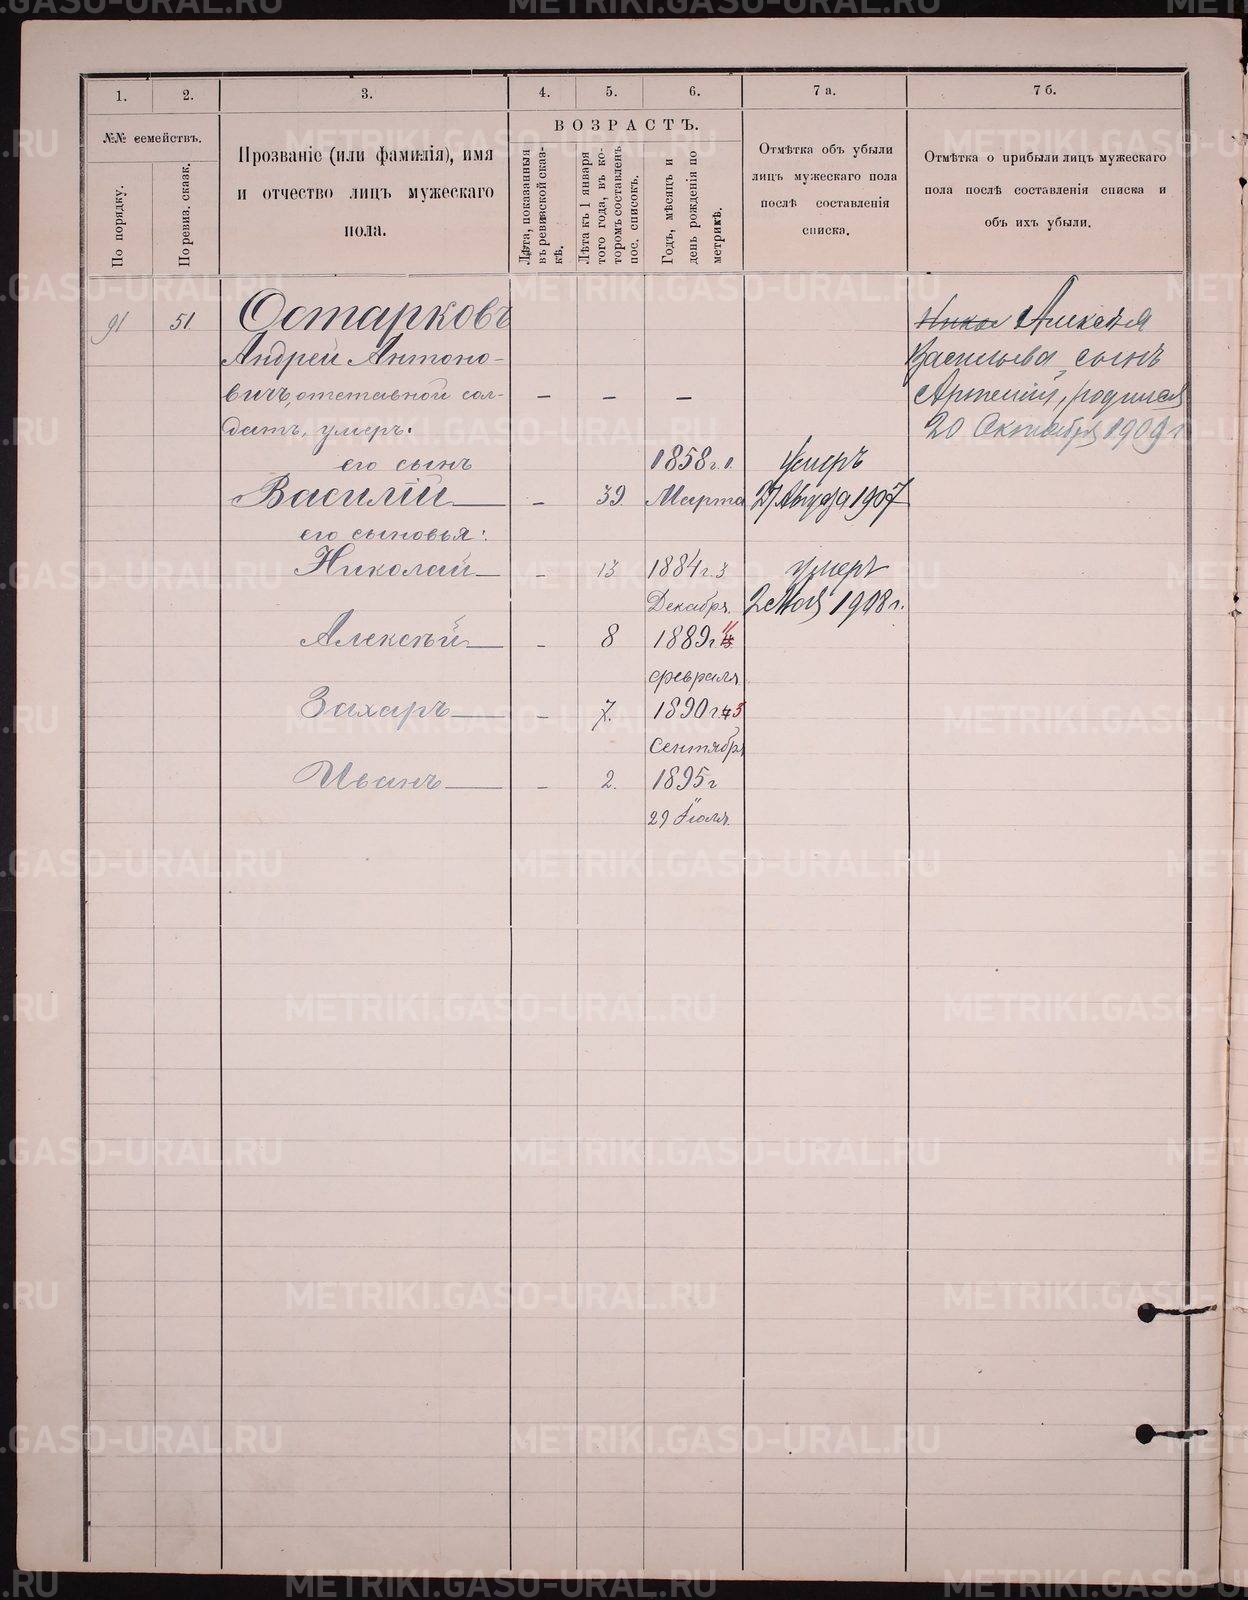 1.
2.
3.
4.
5.
6.
7 а.
7 б.
№№ семействъ.
По порядку.
По ревиз. сказк.
Прозваніе (или фамилія), имя
и отчество лицъ мужескаго
пола.
ВОЗРАСТЪ.
Лѣта, показанныя
въ ревизской сказ-
кѣ.
Лѣта къ 1 января
того года, въ ко-
торомъ составленъ
пос. списокъ.
Годъ, мѣсяцъ и
день рожденія по
метрикѣ.
Отмѣтка объ убыли
лицъ мужескаго пола
послѣ составленія
списка.
Отмѣтка о прибыли лицъ мужескаго
пола послѣ составленія списка и
объ ихъ убыли.
91
51
Остарковъ
Андрей Антоно-
вичъ, отставной сол-
датъ, умеръ.
— — —
его сынъ
1858 г. 1.
Умеръ
Василій — — 39. Марта
27 Августа 1907
его сыновья:
Николай — - 13. 1884 г. 3
умеръ
Декабря.
2 Мая 1908 г.
Алексѣй — - 8 1889 г. 11
февраля
Захаръ — - 7. 1890 г. 3
Сентября
Иванъ — - 2. 1895 г
29 Іюля.
Алексѣя
Васильева, сынъ
Артемий, родился
20 Октября 1909 г
METRIKI.GASO-URAL.RU